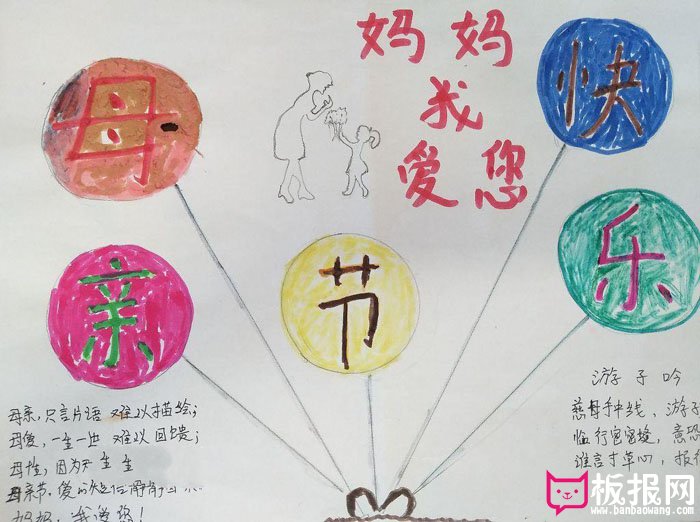 母
亲
节
快
乐
妈妈
我
爱您
母亲,只言片语 难以描绘;
母爱,一生一世 难以回馈;
母性,因为 生生
母亲节,爱的
妈妈,我爱您!
游子吟
慈母手中线,游子
临行密密缝,意恐
谁言寸草心,报
板报网
www.banbaowang.com